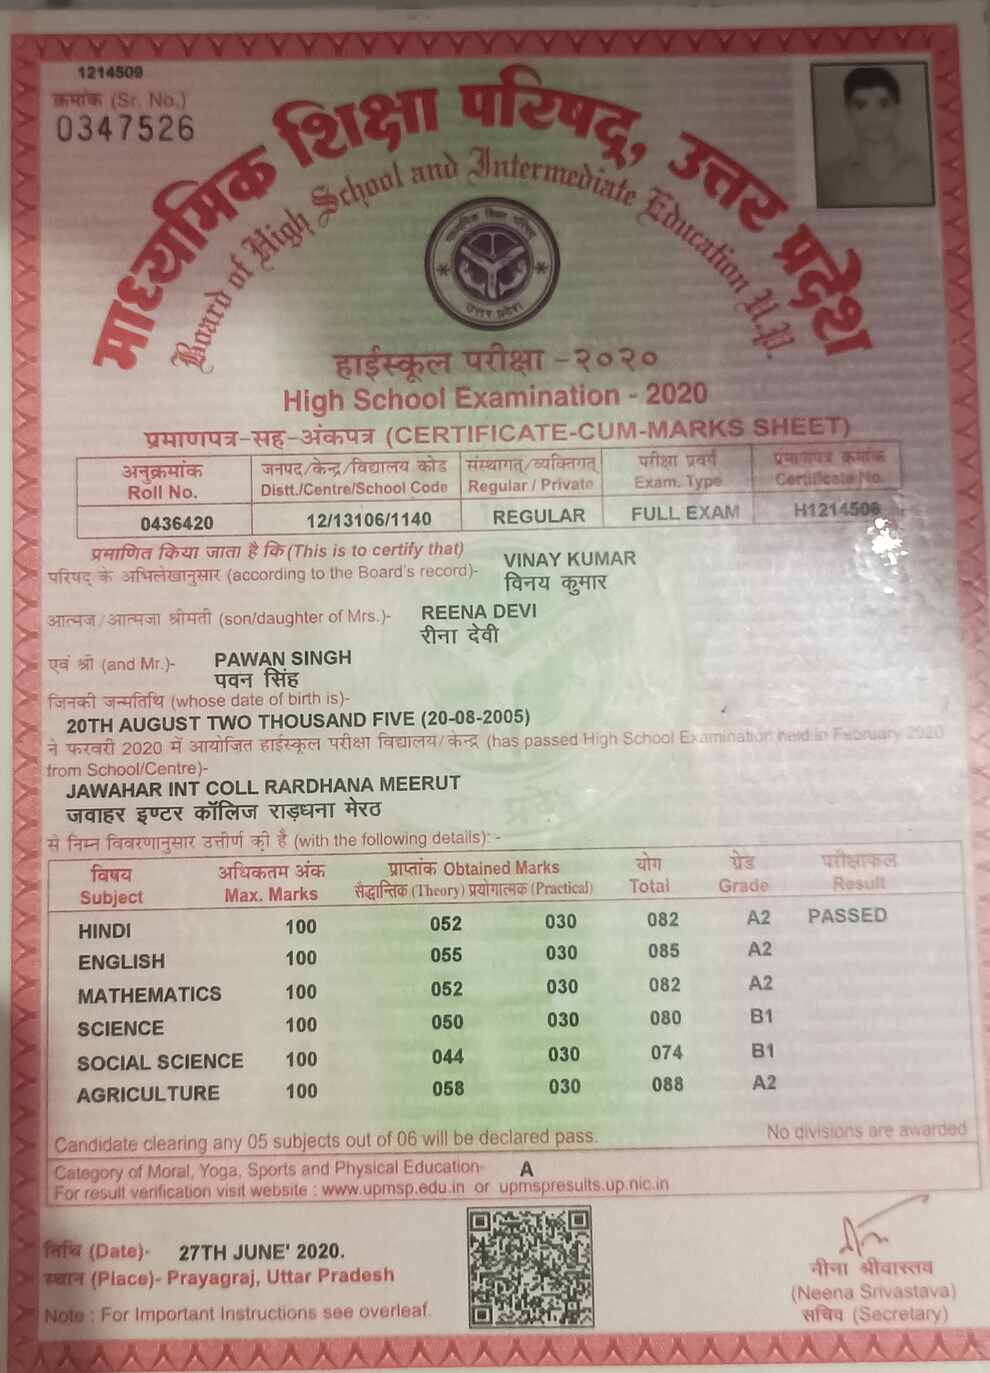 1214509
क्रमांक (Sr. No.)
0347526
माध्यमिक शिक्षा परिषद्, उत्तर प्रदेश
Board of High School and Intermediate Education U.P.
माध्यमिक शिक्षा परिषद्
उत्तर प्रदेश
हाईस्कूल परीक्षा -२०२०
High School Examination - 2020
प्रमाणपत्र-सह-अंकपत्र (CERTIFICATE-CUM-MARKS SHEET)
अनुक्रमांक जनपद/केन्द्र/विद्यालय कोड संस्थागत/व्यक्तिगत परीक्षा प्रवर्ग प्रमाणपत्र क्रमांक
Roll No. Distt./Centre/School Code Regular / Private Exam. Type Certificate No.
0436420 12/13106/1140 REGULAR FULL EXAM H1214506
प्रमाणित किया जाता है कि (This is to certify that)
परिषद के अभिलेखानुसार (according to the Board's record)- VINAY KUMAR
विनय कुमार
आत्मज/आत्मजा श्रीमती (son/daughter of Mrs.)- REENA DEVI
रीना देवी
एवं श्री (and Mr.)- PAWAN SINGH
पवन सिंह
जिनकी जन्मतिथि (whose date of birth is)-
20TH AUGUST TWO THOUSAND FIVE (20-08-2005)
ने फरवरी 2020 में आयोजित हाईस्कूल परीक्षा विद्यालय/केन्द्र (has passed High School Examination held in February 2020
from School/Centre)-
JAWAHAR INT COLL RARDHANA MEERUT
जवाहर इण्टर कॉलिज राड़धना मेरठ
से निम्न विवरणानुसार उत्तीर्ण की है (with the following details): -
विषय अधिकतम अंक प्राप्तांक Obtained Marks योग ग्रेड परीक्षाफल
Subject Max. Marks सैद्धान्तिक (Theory) प्रयोगात्मक (Practical) Total Grade Result
HINDI 100 052 030 082 A2 PASSED
ENGLISH 100 055 030 085 A2
MATHEMATICS 100 052 030 082 A2
SCIENCE 100 050 030 080 B1
SOCIAL SCIENCE 100 044 030 074 B1
AGRICULTURE 100 058 030 088 A2
Candidate clearing any 05 subjects out of 06 will be declared pass. No divisions are awarded
Category of Moral, Yoga, Sports and Physical Education- A
For result verification visit website : www.upmsp.edu.in or upmspresults.up.nic.in
तिथि (Date)- 27TH JUNE' 2020.
स्थान (Place)- Prayagraj, Uttar Pradesh
Note : For Important Instructions see overleaf.
नीना श्रीवास्तव
(Neena Srivastava)
सचिव (Secretary)